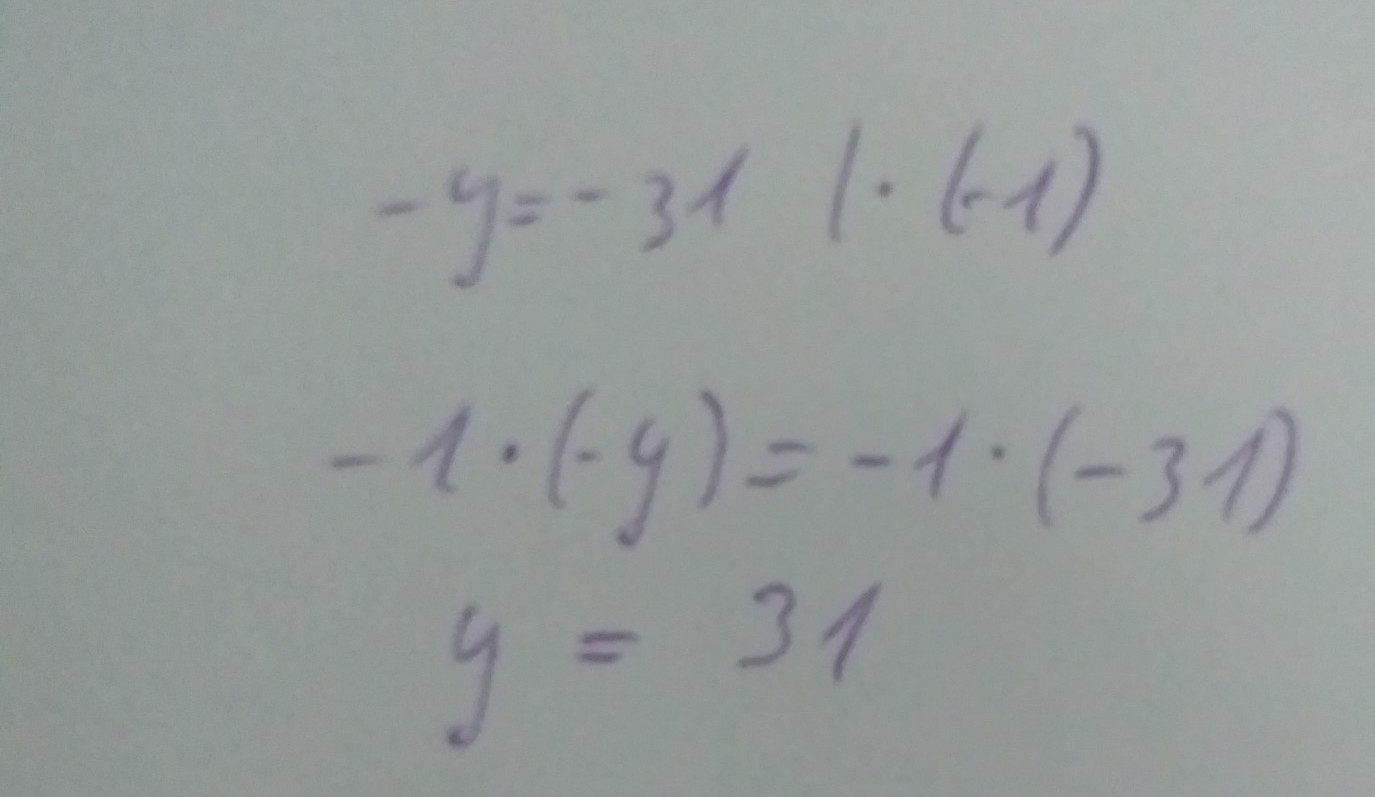 -y=-31 |·(-1)
-1·(-y)=-1·(-31)
y = 31